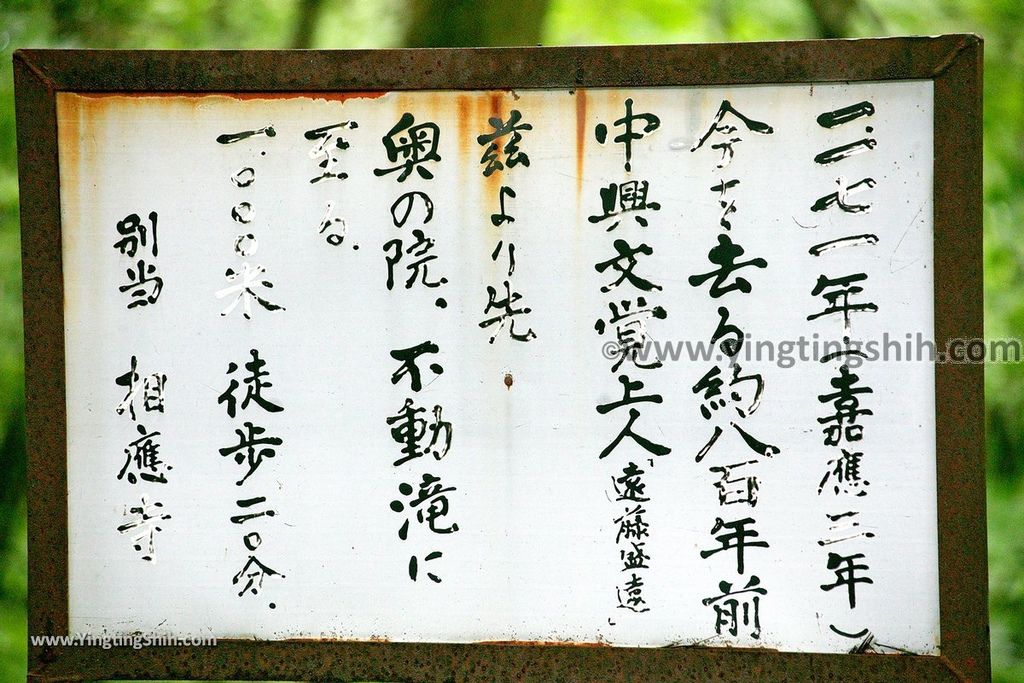 一一七一年(嘉應三年)
今を去る約八百年前
中興文覚上人「遠藤盛遠」
茲より先
奥の院、不動滝に
至る。
一.〇〇〇米 徒歩二〇分.
別当 相應寺
©www.YingtingShih.com
www.YingtingShih.com